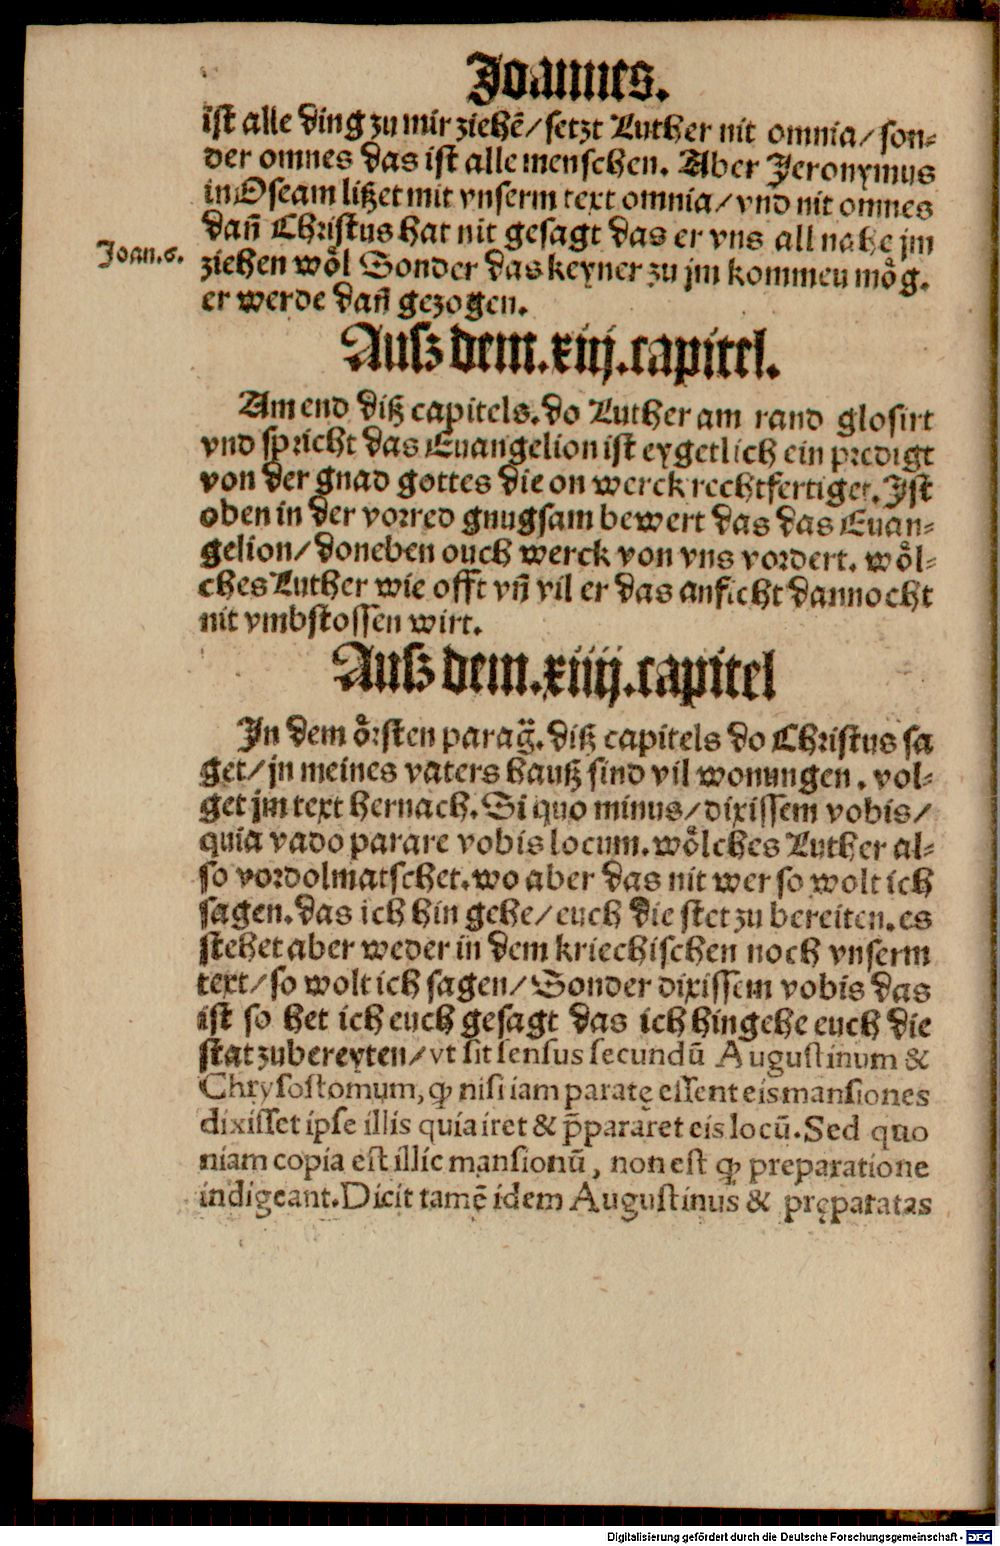 Joannes.
ist alle ding zu mir ziehē/ setzt Luther nit omnia/ son⸗
der omnes das ist alle menschen. Aber Jeronymus
in Oseam litzet mit vnserm text omnia/ vnd nit omnes
dañ Christus hat nit gesagt das er vns all nahe jm
Joan.6.
ziehen wöl Sonder das keyner zu jm kommen mög.
er werde dañ gezogen.
Ausz dem.xiij.capitel.
Am end ditz capitels. do Luther am rand glosirt
vnd spricht das Euangelion ist eygetlich ein predigt
von der gnad gottes die on werck rechtfertiget. Ist
oben in der vorred gnugsam bewert das das Euan⸗
gelion/ doneben ouch werck von vns vordert. wöl⸗
ches Luther wie offt vñ vil er das anficht dannocht
nit vmbstossen wirt.
Ausz dem.xiiij.capitel
In dem örsten parag̃. ditz capitels do Christus sa
get/ jn meines vaters hautz sind vil wonungen. vol⸗
get jm text hernach. Si quo minus/ dixissem vobis/
quia vado parare vobis locum. wölches Luther al⸗
so vordolmatschet. wo aber das nit wer so wolt ich
sagen. das ich hin gehe/ euch die stet zu bereiten. es
stehet aber weder in dem kriechischen noch vnserm
text/ so wolt ich sagen/ Sonder dixissem vobis das
ist so het ich euch gesagt das ich hingehe euch die
stat zubereyten/ vt sit sensus secundū Augustinum &
Chrysostomum, ꝙ nisi iam paratę essent eis mansiones
dixisset ipse illis quia iret & p̄pararet eis locū. Sed quo
niam copia est illic mansionū, non est ꝙ preparatione
indigeant. Dicit tamē idem Augustinus & pręparatas
Digitalisierung gefördert durch die Deutsche Forschungsgemeinschaft - DFG